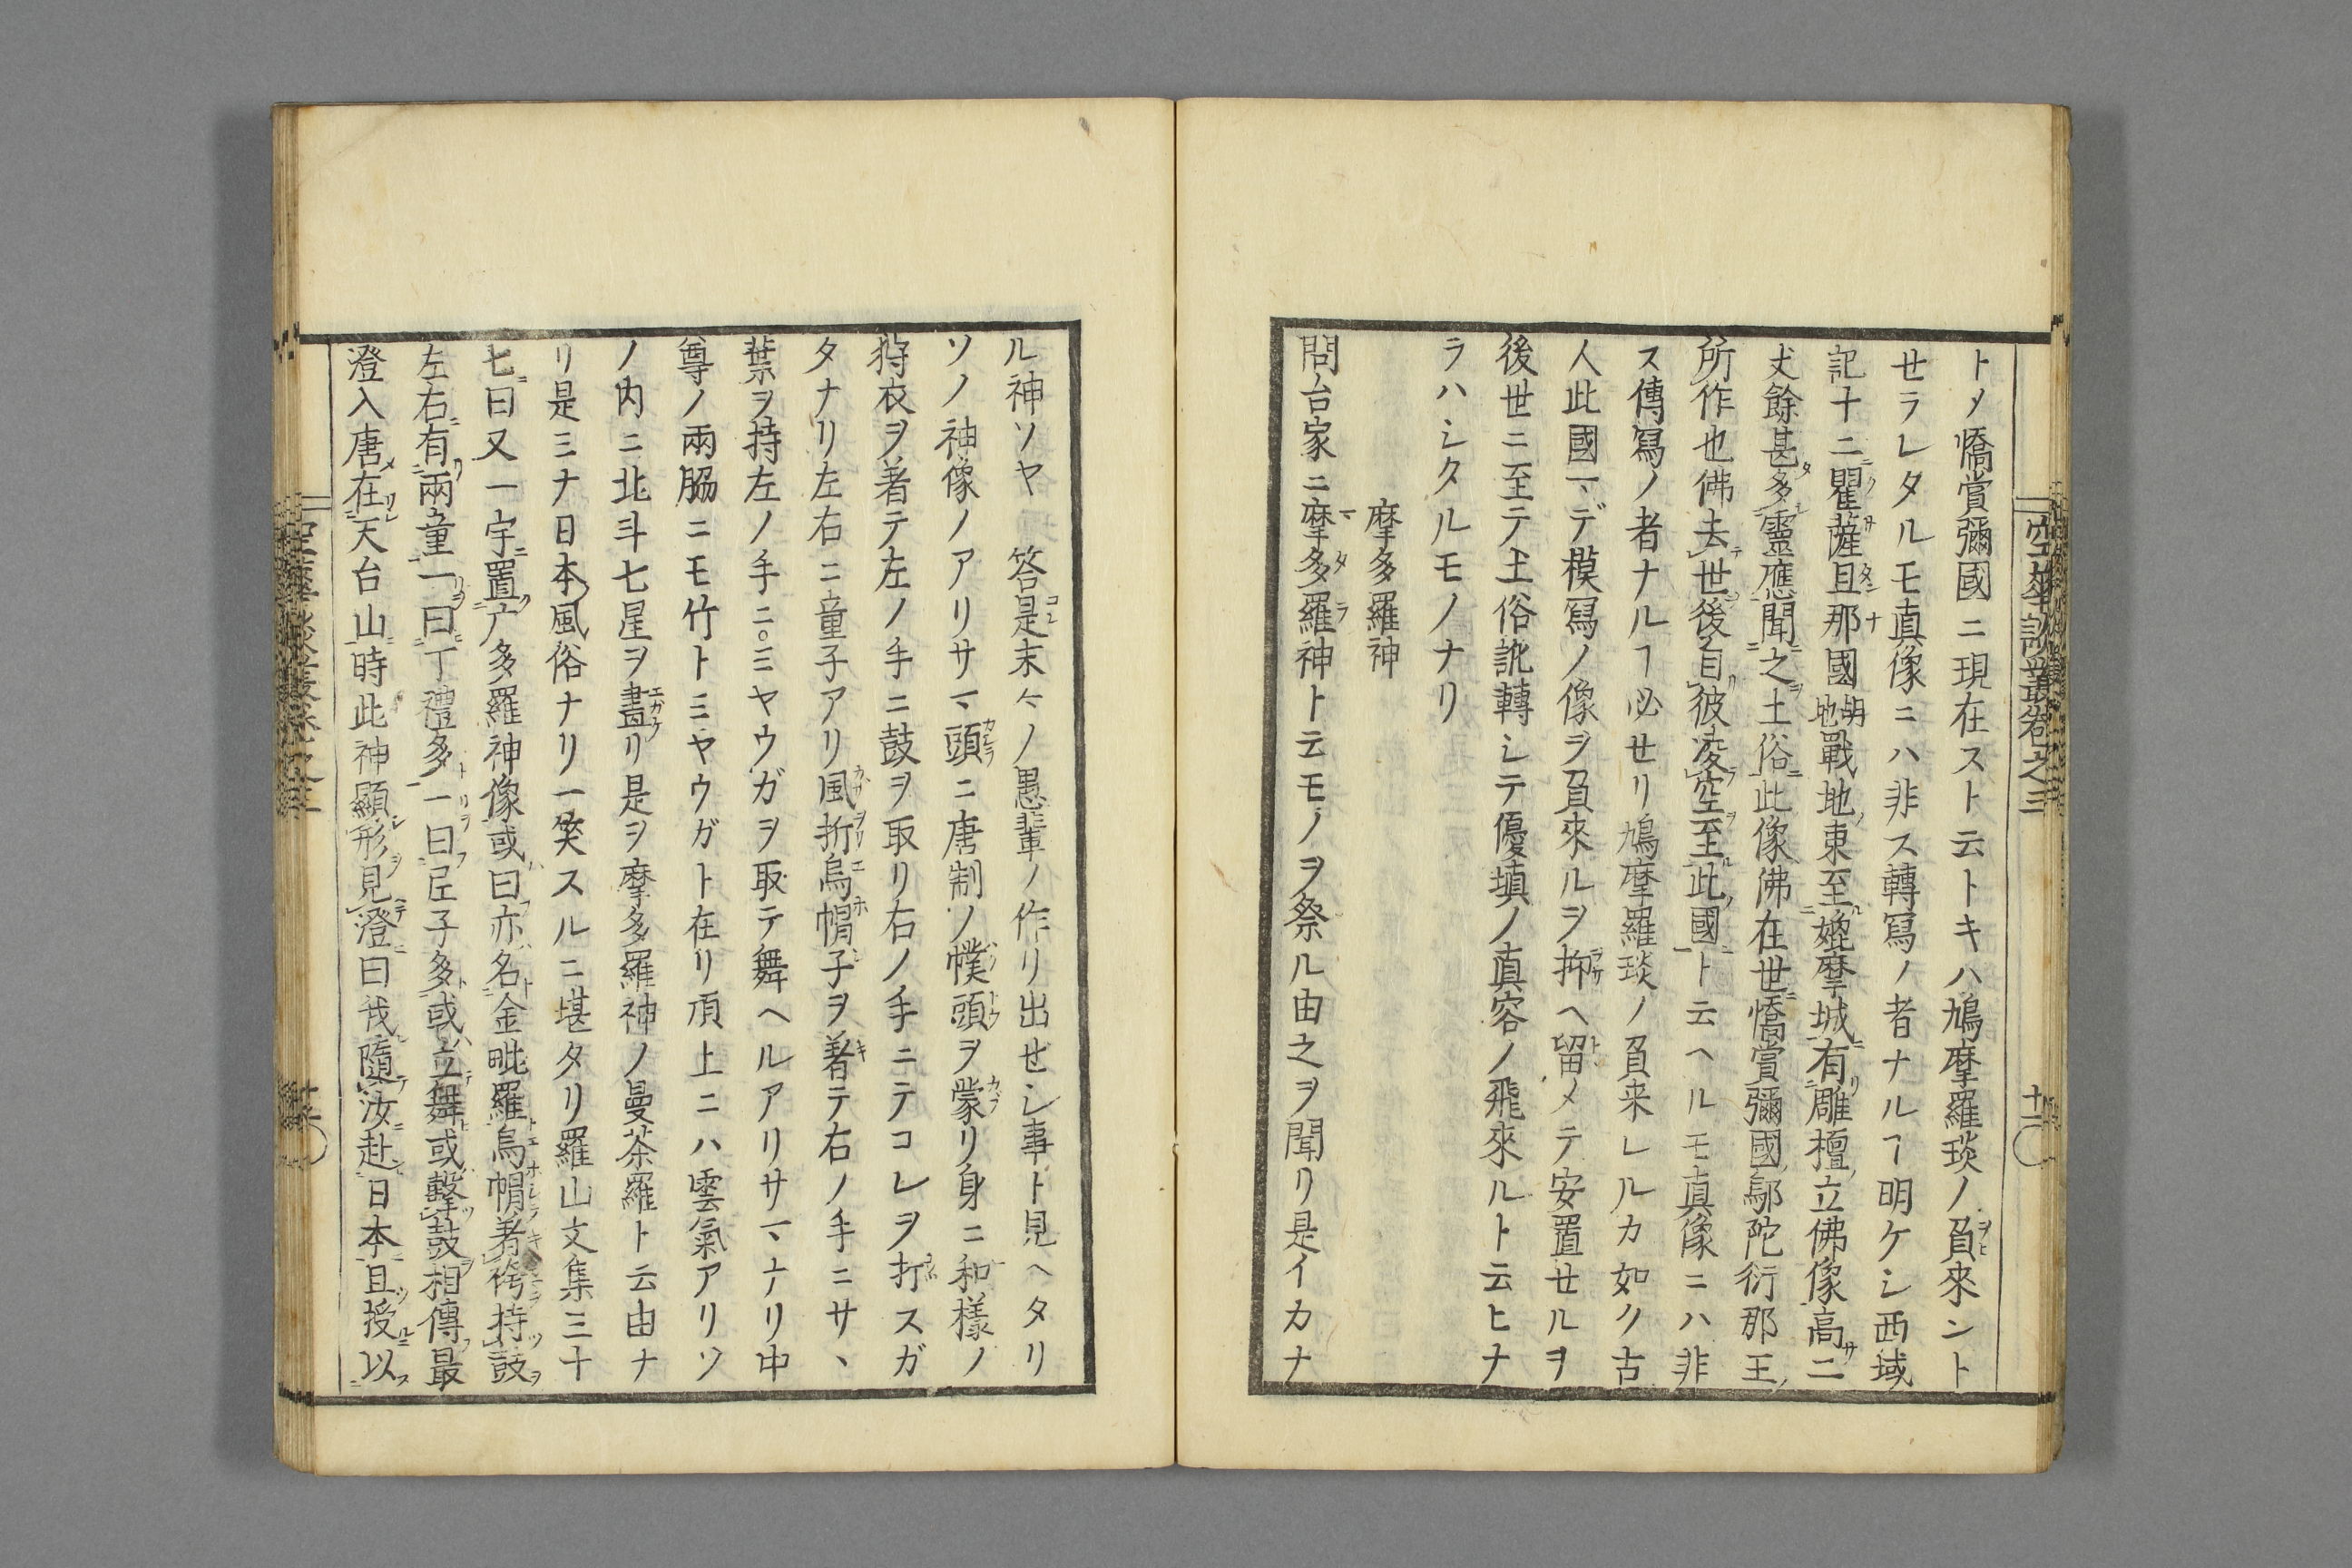 トメ憍賞彌國ニ現在スト云トキハ鳩摩羅琰ノ負來ント
せラレタルモ真像ニハ非ス轉寫ノ者ナルヿ明ケシ西域
記十二瞿薩旦那國戰地東至媲摩城有雕檀立佛像高二
丈餘甚多靈應聞之土俗此像佛在世憍賞彌國鄔陀衍那王
所作也佛去世後自彼凌空至此國ト云ヘルモ真像ニハ非
ス傳寫ノ者ナルヿ必せリ鳩摩羅琰ノ負来レルカ如ク古
人此國マデ模寫ノ像ヲ負來ルヲ抑ヘ留メテ安置せルヲ
後世ニ至テ土俗訛轉シテ優填ノ真容ノ飛來ルト云ヒナ
ラハシタルモノナリ
摩多羅神
問台家ニ摩多羅神ト云モノヲ祭ル由之ヲ聞リ是イカナ
ル神ソヤ 答是末々ノ愚輩ノ作リ出せシ事ト見ヘタリ
ソノ神像ノアリサマ頭ニ唐制ノ幞頭ヲ蒙リ身ニ和樣ノ
狩衣ヲ著テ左ノ手ニ鼓ヲ取リ右ノ手ニテコレヲ打スガ
タナリ左右ニ童子アリ風折烏帽子ヲ著テ右ノ手ニサヽ
葉ヲ持左ノ手ニ。ミヤウガヲ取テ舞ヘルアリサマナリ中
尊ノ兩脇ニモ竹トミヤウガト在リ頂上ニハ雲氣アリソ
ノ内ニ北斗七星ヲ畫リ是ヲ摩多羅神ノ曼荼羅ト云由ナ
リ是ミナ日本風俗ナリ一笑スルニ堪タリ羅山文集三十
七曰又一宇置广多羅神像或曰亦名金毗羅烏帽著袴持鼓
左右有兩童一曰丁禮多一曰𡰱子多或立舞或擊鼓相傳最
澄入唐在天台山時此神顯形見澄曰我隨汝赴日本且授以